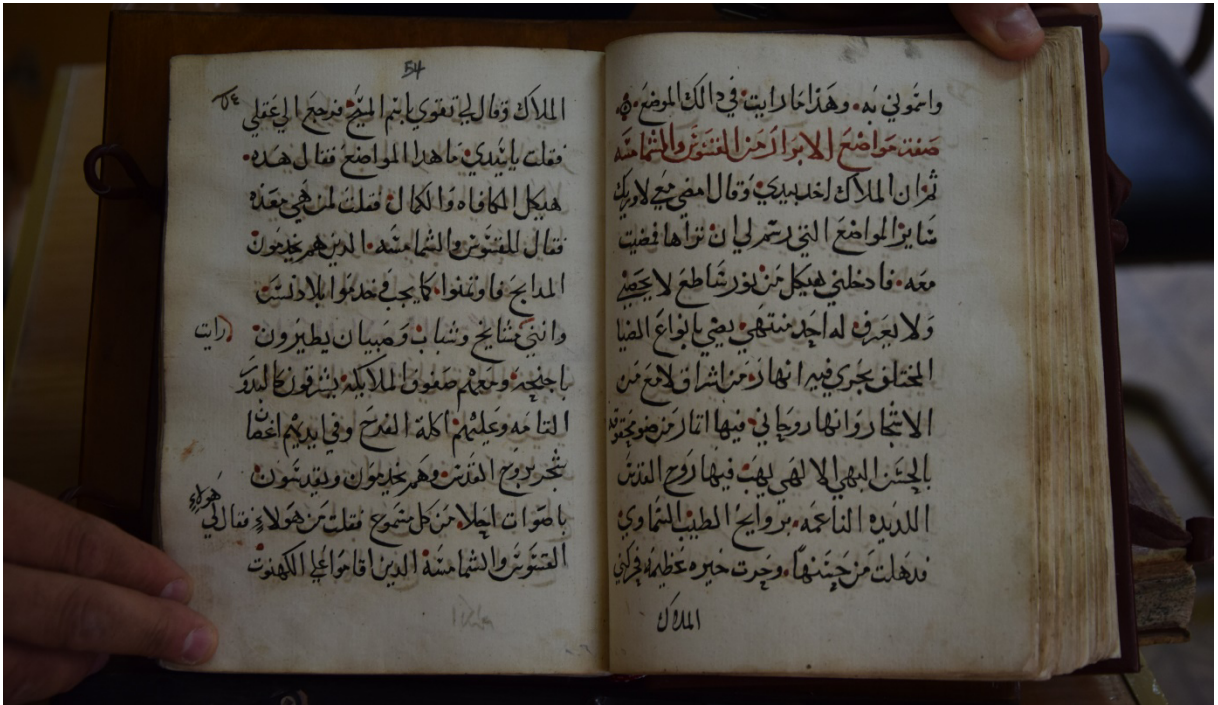 وامنوني به. وهذا ما رايت في دالك الموضع.
صفة مواضع الابرار من القسوس والشمامسه
ثم ان الملاك اخد بيدي وقال امضي معي لاوريك
ساير المواضع التي رسم لي ان تراها فمضيت
معه. فادخلني هيكل من نور ساطع لا يحصي
ولا يعرف له احد منتهي يضي بانواع الضيا
المختلف يجري فيه انهار من اشراق لامع من
الاشجار وانهار روحاني فيها اتار من ضو
بالحسن البهي الالهي يهب فيها روح القدس
اللديده الناعمه. بروايح الطيب السماوي
فدهلت من حسنها. وحرت حيره عظيمه فحركني
الملاك
54
٥٤
الملاك وقال لي تقوي باسم المسيح فرجع الي عقلي
فقلت يا سيدي ما هدا المواضع فقال هده
هيكل المكافاه والكمال فقلت لمن هي معده
فقال للقسوس والشمامسه. الدين هم يخدمون
المدابح فاوتمنوا كما يجب فخدموا بلا دنس
وانني مشايخ وشباب وصبيان يطيرون
رايت
باجنحه ومعهم صفوف الملايكه يشرقون كالبدور
التامه وعليهم اكلة الفرح وفي ايديهم اغصان
شجر بروح القدس وهم يخدمون ويقدسون
باصوات احلا من كل مسموع فقلت من هولاء فقال لي
هولاء
القسوس والشمامسه الدين اقاموا علي الكهنوت